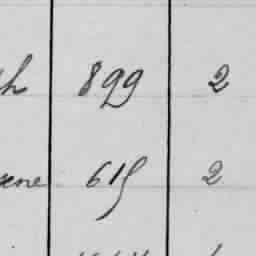 h 899 2
ene 615 2